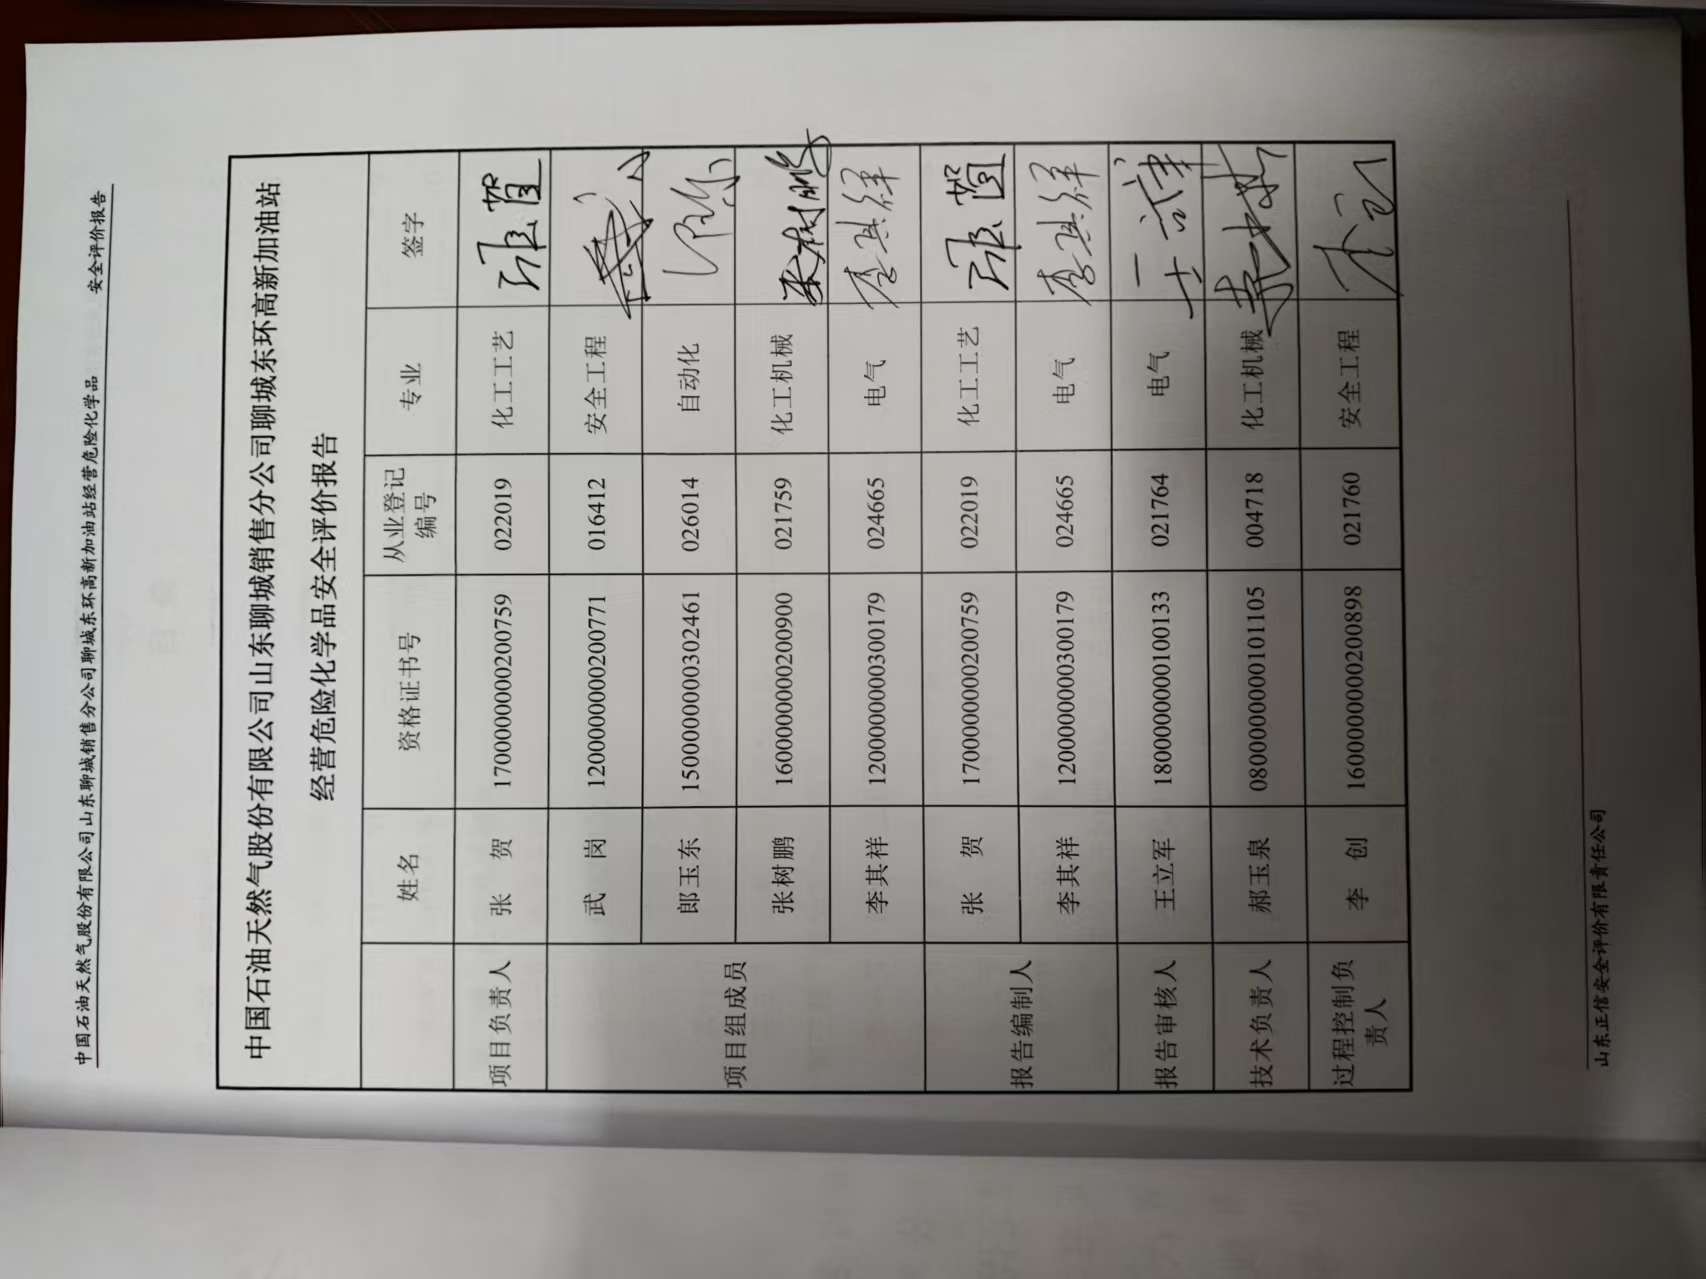 中国石油天然气股份有限公司山东聊城销售分公司聊城东环高新加油站经营危险化学品 安全评价报告
中国石油天然气股份有限公司山东聊城销售分公司聊城东环高新加油站
经营危险化学品安全评价报告
姓名 资格证书号 从业登记编号 专业 签字
项目负责人 张贺 1700000000200759 022019 化工工艺 张贺
项目组成员 武岗 1200000000200771 016412 安全工程
郎玉东 1500000000302461 026014 自动化
张树鹏 1600000000200900 021759 化工机械 张树鹏
李其祥 1200000000300179 024665 电气 李其祥
报告编制人 张贺 1700000000200759 022019 化工工艺 张贺
李其祥 1200000000300179 024665 电气 李其祥
报告审核人 王立军 1800000000100133 021764 电气
技术负责人 郝玉泉 0800000000101105 004718 化工机械
过程控制负责人 李创 1600000000200898 021760 安全工程
山东正信安全评价有限责任公司